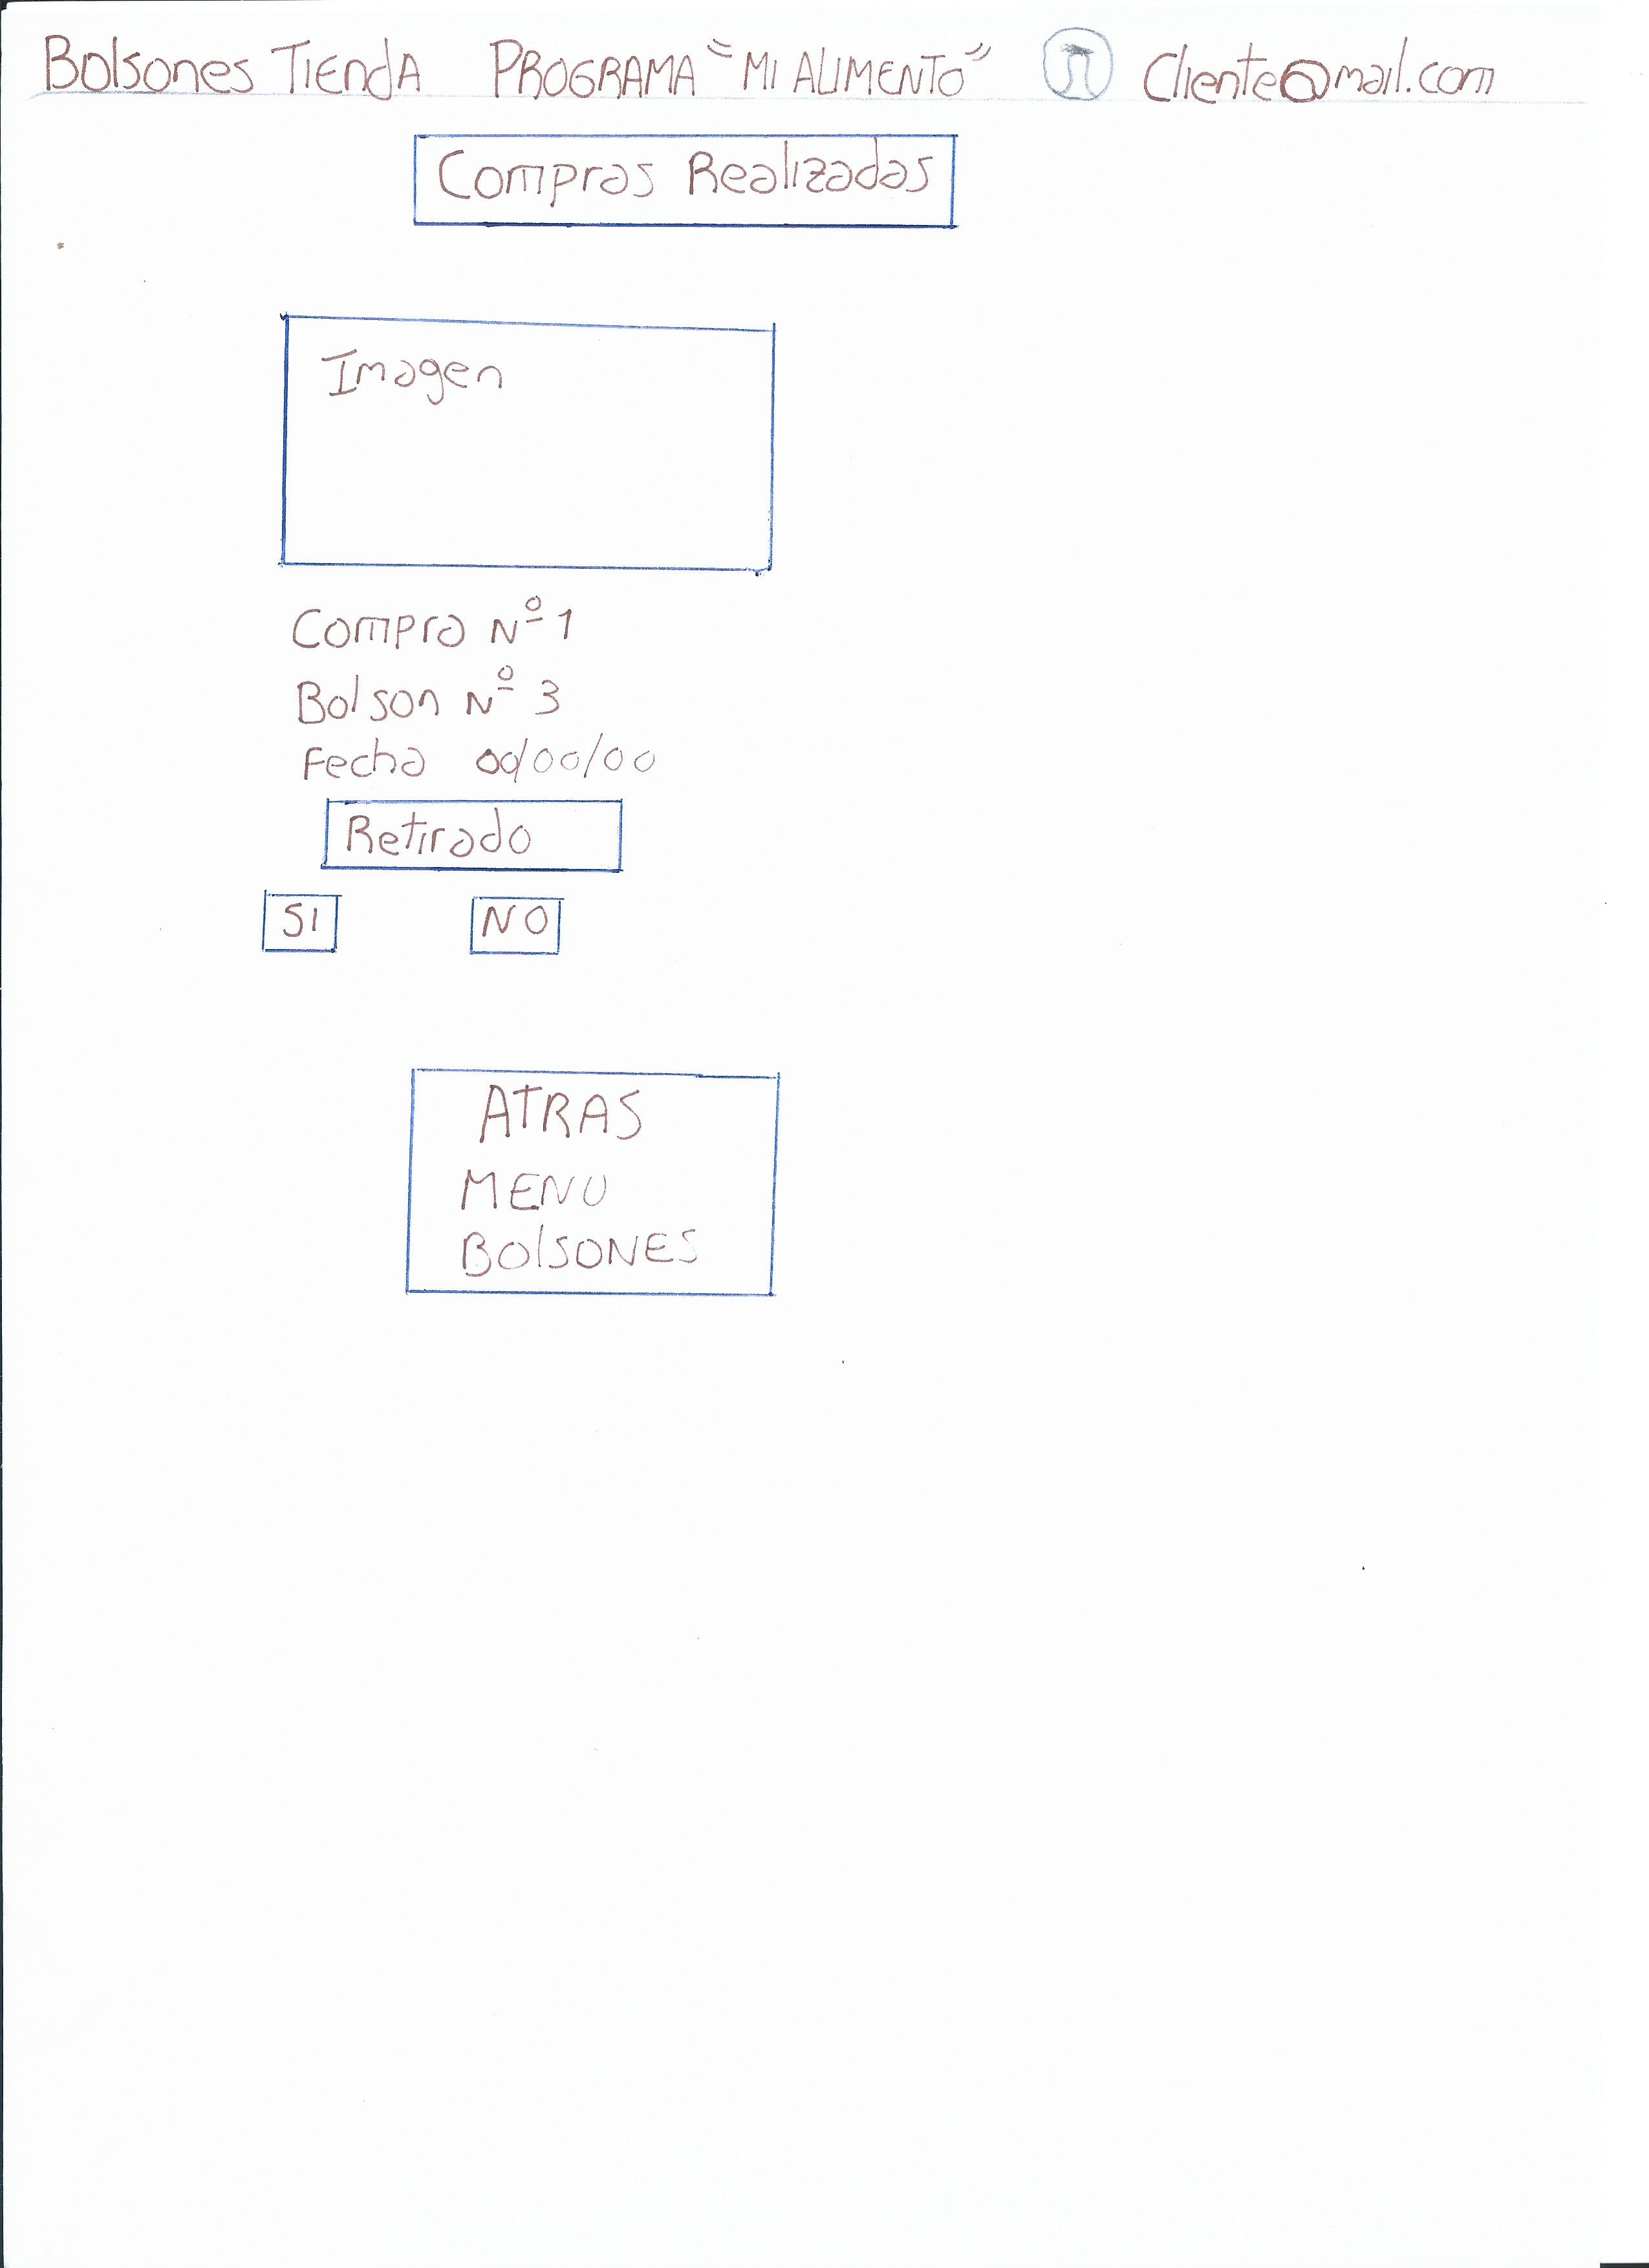 Bolsones TIEndA PROGRAMA "MI ALIMENTO" Cliente@mail.com
Compras Realizadas
Imagen
Compra Nº 1
Bolson Nº 3
Fecha 00/00/00
Retirado
SI NO
ATRAS
MENU
BOlSONES